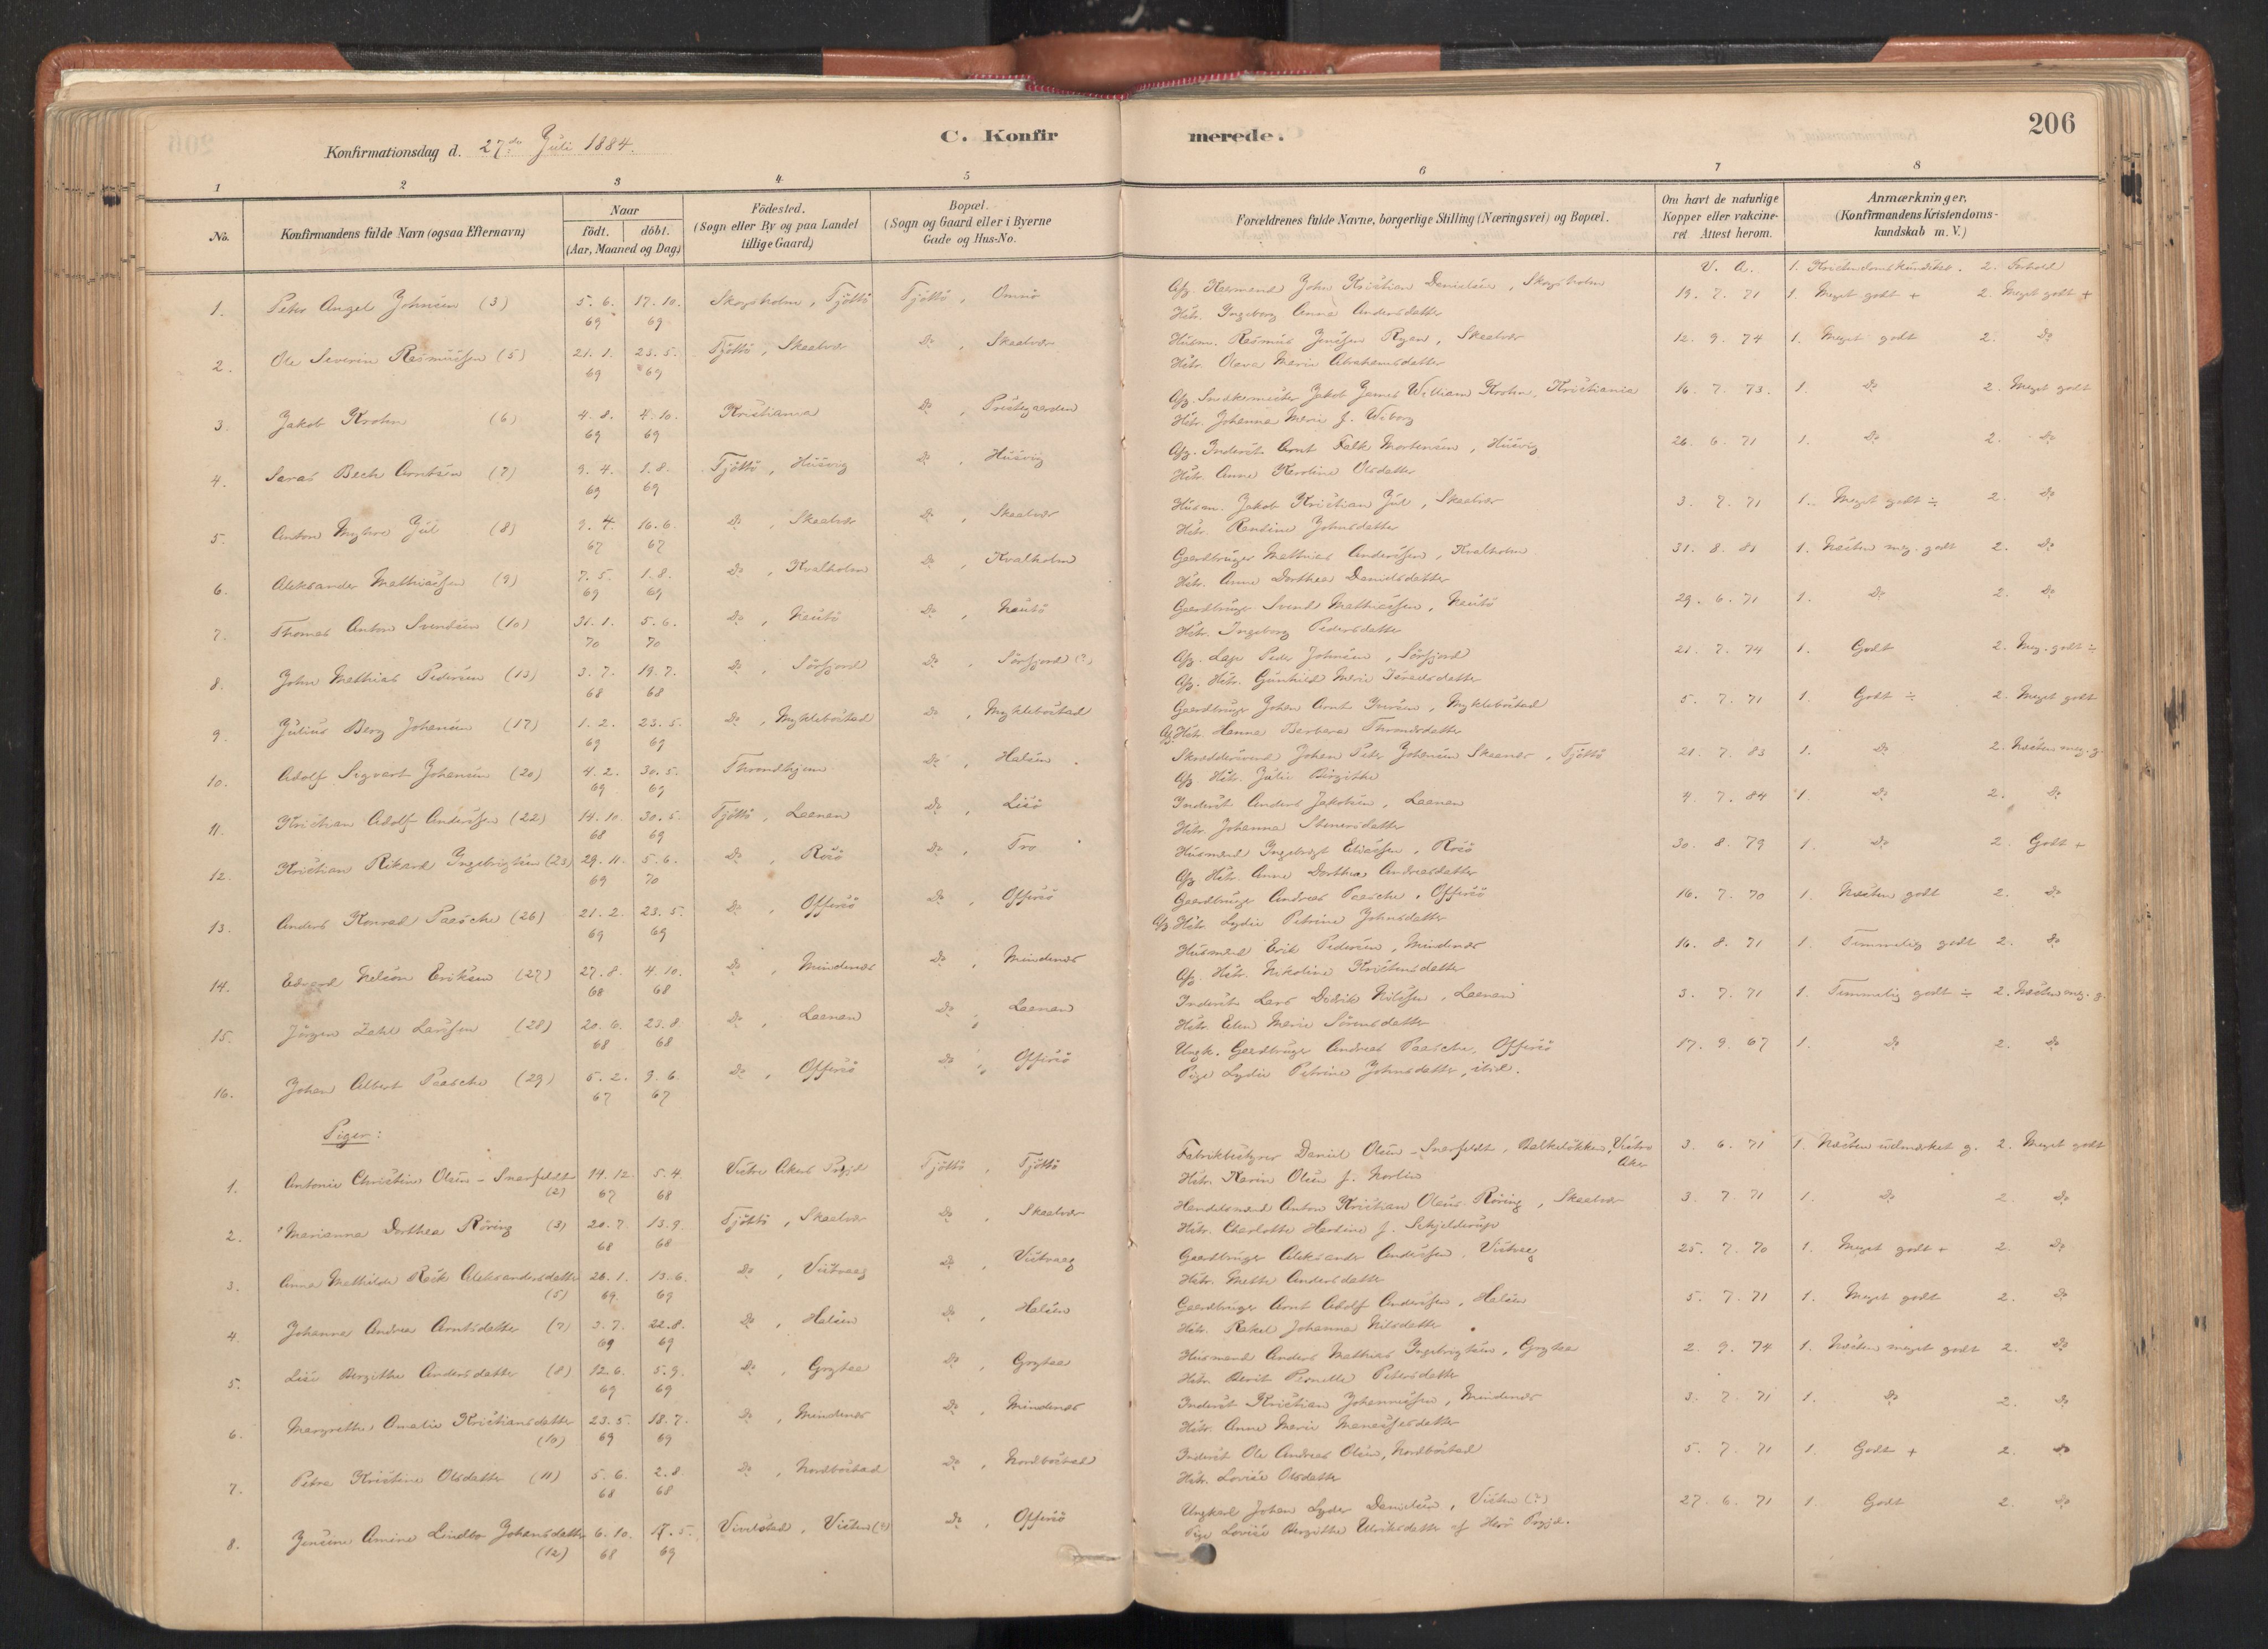 206
C. Konfirmerede.
Konfirmationsdag d. 27de Juli 1884.
1 2 3 4 5 6 7 8
No. Konfirmandens fulde Navn (ogsaa Efternavn) Naar födt. döbt. (Aar, Maaned og Dag) Födested. (Sogn eller By og paa Landet tillige Gaard) Bopæl. (Sogn og Gaard eller i Byerne Gade og Hus-No. Forældrenes fulde Navne, borgerlige Stilling (Næringsvei) og Bopæl. Om havt de naturlige Kopper eller vakcineret. Attest herom. Anmærkninger. (Konfirmandens Kristendomskundskab m. V.)
V. A. 1. Kristendomskundskab. 2. Forhold
1. Peter Angel Johnsen (3) 5. 6. 69 17. 10. 69 Skogsholm, Tjöttö Tjöttö, Omnö Afg. Husmand John Kristian Danielsen, Skogsholm 19. 7. 71 1. Meget godt + 2. Meget godt +
Hstr. Ingeborg Anna Andersdatter
2. Ole Severin Rasmussen (5) 21. 1. 69 23. 5. 69 Tjöttö, Skaalvær Do, Skaalvær Husm. Rasmus Jensen Ryen, Skaalvær 12. 9. 74 1. Meget godt 2. Do
Hstr. Olava Maria Abrahamsdatter
3. Jakob Krohn (6) 4. 8. 69 4. 10. 69 Kristiania Do, Prestegaarden Afg. Snedkermester Jakob James William Krohn, Kristiania 16. 7. 73. 1. Do 2. Meget godt
Hstr. Johanna Marie f. Wiborg
4. Saras Bech Arntsen (7) 9. 4. 69 1. 8. 69 Tjöttö, Husvig Do, Husvig Afg. Inderst Arnt Falk Mortensen, Husvig 26. 6. 71 1. Do 2. Do
Hstr. Anne Karoline Olsdatter
5. Anton Myhre Jul (8) 9. 4. 67 16. 6. 67 Do, Skaalvær Do, Skaalvær Husm. Jakob Kristian Jul, Skaalvær 3. 7. 71 1. Meget godt ÷ 2. Do
Hstr. Rensine Johnsdatter
6. Aleksander Mathiassen (9) 7. 5. 69 1. 8. 69 Do, Kvalholm Do, Kvalholm Gaardbruger Mathias Anderssen, Kvalholm 31. 8. 81 1. Næsten meg. godt 2. Do
Hstr. Anne Dorthea Danielsdatter
7. Thomas Anton Svendsen (10) 31. 1. 70 5. 6. 70 Do, Nautö Do, Nautö Gaardbruger Svend Mathiassen, Nautö 29. 6. 71 1. Do 2. Do
Hstr. Ingeborg Pedersdatter
8. John Mathias Pedersen (13) 3. 7. 68 19. 7. 68 Do, Sörfjord Do, Sörfjord (?) Afg. Lap Peder Johnsen, Sörfjord 21. 7. 74 1. Godt 2. Meg. godt ÷
Afg. Hstr. Gunhild Marie Israelsdatter
9. Julius Berg Johansen (17) 1. 2. 69 23. 5. 69 Do, Myklebostad Do, Myklebostad Gaardbruger Johan Arnt Iversen, Myklebostad 5. 7. 71 1. Godt ÷ 2. Meget godt
Afg. Hstr. Hanna Barbara Throndsdatter
10. Adolf Sigvart Johansen (20) 4. 2. 69 30. 5. 69 Throndhjem Do, Halsen Skræddersvend Johan Peter Johansen Skaanes, Tjöttö 21. 7. 83 1. Do 2. Næsten meg. g.
Afg. Hstr. Julie Birgithe
11. Kristian Adolf Anderssen (22) 14. 10. 68 30. 5. 69 Tjöttö, Laanan Do, Lisö Inderst Anders Jakobsen, Laanan 4. 7. 84 1. Do 2. Do
Hstr. Johanna Steinersdatter
12. Kristian Rikard Ingebrigtsen (23) 29. 11. 69 5. 6. 70 Do, Rosö Do, Tro Husmand Ingebrigt Eliassen, Rosö 30. 8. 79 1. Do 2. Godt +
Afg. Hstr. Anne Dorthea Andreasdatter
13. Anders Konrad Paasche (26) 21. 2. 69 23. 5. 69 Do, Offersö Do, Offersö Gaardbruger Andreas Paasche, Offersö 16. 7. 70 1. Næsten godt 2. Do
Afg Hstr. Lydia Petrine Johnsdatter
14. Edvard Nelson Eriksen (27) 27. 8. 68 4. 10. 68 Do, Mindenes Do, Mindenes Husmand Erik Pedersen, Mindenes 16. 8. 71 1. Temmelig godt 2. Do
Afg. Hstr. Nikoline Kristensdatter
15. Jörgen Zahl Larssen (28) 20. 6. 68 23. 8. 68 Do, Laanan Do, Laanan Inderst Lars Didrik Nilssen, Laanan 3. 7. 71 1. Temmelig godt ÷ 2. Næsten meg. g.
Hstr. Elen Marie Sörensdatter
16. Johan Albert Paasche (29) 5. 2. 67 9. 6. 67 Do, Offersö Do, Offersö Ungk. Gaardbruger Andreas Paasche, Offersö 17. 9. 67 1. Do 2. Do
Pige Lydia Petrine Johnsdatter, ibid.
Piger:
1. Antonie Christine Olsen-Snarfeldt (2) 14. 12. 67 5. 4. 68 Vestre Akers Prgjd Tjöttö, Tjöttö Fabrikbestyrer Daniel Olsen-Snarfeldt, Balkelökken, Vestre Aker 3. 6. 71 1. Næsten udmærket g. 2. Meget godt
Hstr. Karin Olsen f. Norlin
2. Marianna Dorthea Röring (3) 20. 7. 68 13. 9. 68 Tjöttö, Skaalvær Do, Skaalvær Handelsmand Anton Kristian Olaus Röring, Skaalvær 3. 7. 71 1. Do 2. Do
Hstr. Charlotte Hardine f. Schjelderup
3. Anna Mathilde Rask Aleksandersdatter (5) 26. 1. 69. 13. 6. 69 Do, Vistvaag Do, Vistvaag Gaardbruger Aleksander Anderssen, Vistvaag 25. 7. 70 1. Meget godt + 2. Do
Hstr. Mette Andersdatter
4. Johanna Andrea Arntsdatter (7) 3. 7. 69 22. 8. 69 Do, Halsen Do, Halsen Gaardbruger Arnt Adolf Anderssen, Halsen 5. 7. 71 1. Meget godt 2. Do
Hstr. Rakel Johanna Nilsdatter
5. Lise Bergithe Andersdatter (8) 12. 6. 69 5. 9. 69 Do, Grytaa Do, Grytaa Husmand Anders Mathias Ingebrigtsen, Grytaa 2. 9. 74 1. Næsten meget godt 2. Do
Hstr. Berit Pernelle Petersdatter
6. Margrethe Amalie Kristiansdatter (10) 23. 5. 69 18. 7. 69 Do, Mindenes Do, Mindenes Inderst Kristian Johannessen, Mindenes 3. 7. 71 1. Do 2. Do
Hstr. Anne Marie Manassesdatter
7. Petra Kristine Olsdatter (11) 5. 6. 68 2. 8. 68 Do, Nordbostad Do, Nordbostad Inderst Ole Andreas Olsen, Nordbostad 5. 7. 71 1. Godt + 2. Do
Hstr. Lovise Olsdatter
8. Jensine Amine Lindbo Johansdatter (12) 6. 10. 68 17. 5. 69 Vivelstad, Visten (?) Do, Offersö Ungkarl Johan Lyder Danielsen, Visten (?) 27. 6. 71 1. Godt 2. Do
Pige Lovise Bergithe Ulriksdatter af Herö Prgjd.